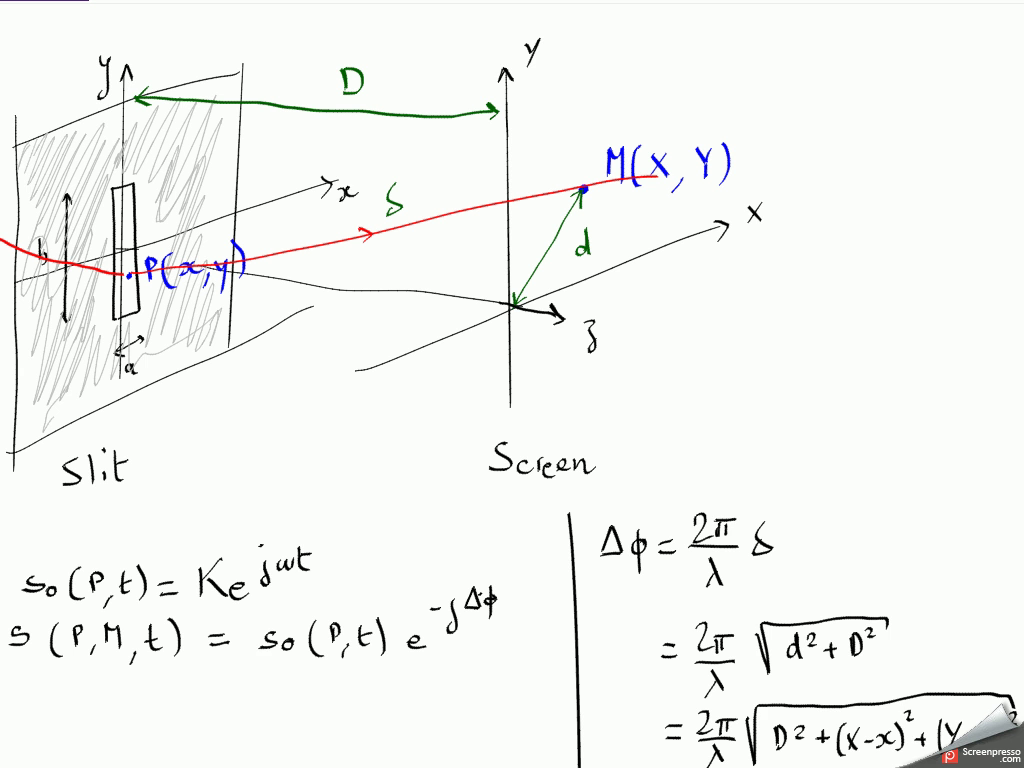 y
D
Y
M(X, Y)
x
δ
X
b
P(x, y)
d
z
a
Slit
Screen
so(P,t) = K e^{jωt}
s(P,M,t) = so(P,t) e^{-jΔφ}
Δφ = 2π/λ δ
= 2π/λ √(d² + D²)
= 2π/λ √(D² + (X-x)² + (Y ²
Screenpresso
.com